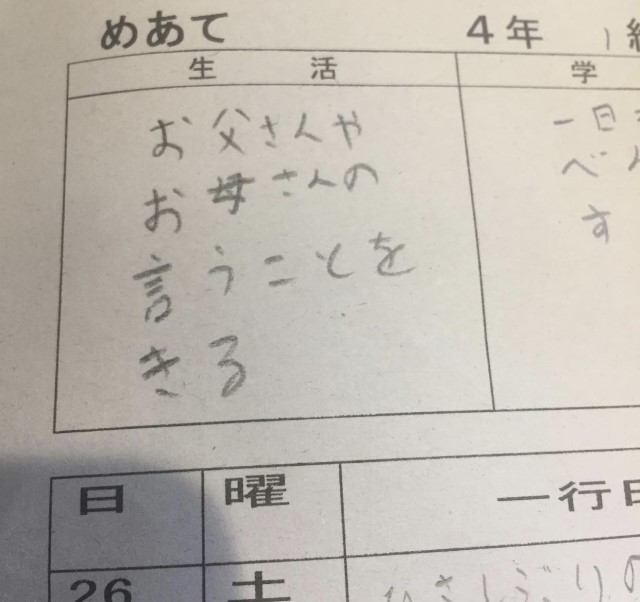 めあて 4年 1
生 活 学
お父さんや
お母さんの
言うことを
きる
一日
べん
す
日 曜 一行日
26 土 ひさしぶりの